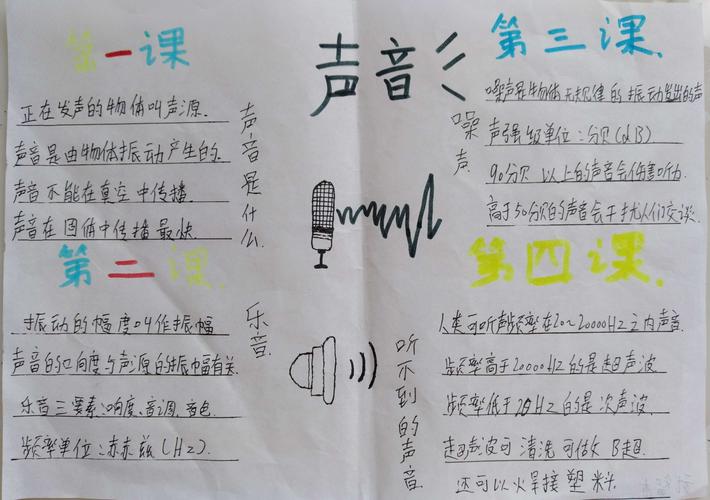 声音
第一课
声音是什么
正在发声的物体叫声源.
声音是由物体振动产生的.
声音不能在真空中传播.
声音在固体中传播最快.
第二课
乐音
振动的幅度叫作振幅
声音的响度与声源的振幅有关.
乐音三要素:响度、音调、音色
频率单位:赫赫兹(Hz).
第三课.
噪声
噪声是物体无规律的振动发出的声
声强级单位:分贝(dB)
90分贝以上的声音会伤害听力.
高于50分贝的声音会干扰人们交谈.
第四课.
听不到的声音
人类可听声频率在20~20000Hz之内声音.
频率高于20000Hz的是超声波
频率低于20Hz的是次声波.
超声波可清洗可做B超.
还可以火焊接塑料.